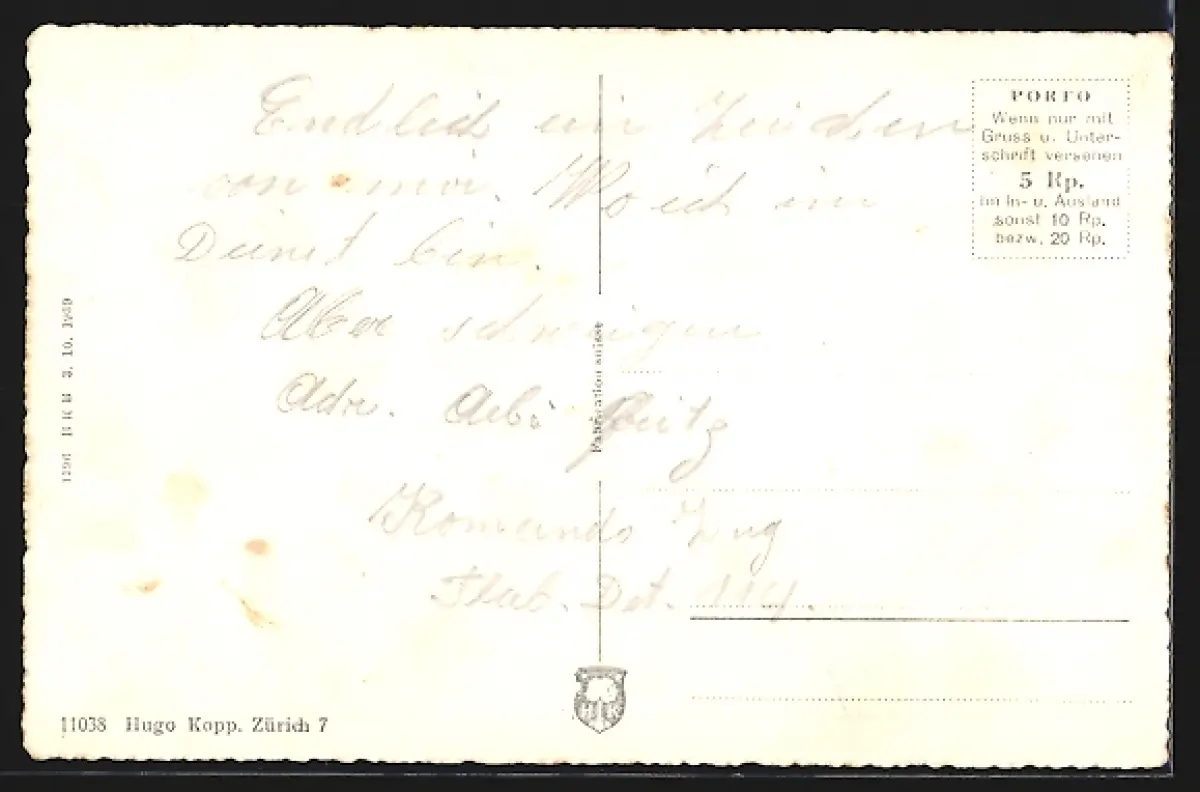 Endlich ein Zeichen
von mir. Wo ich im
Dienst bin.
Aber schweigen
Adr. Aebi Fritz
Komando Zug
Flab. Det. 114.
PORTO
Wenn nur mit
Gruss u. Unter-
schrift versehen
5 Rp.
im In- u. Ausland
sonst 10 Rp.
bezw. 20 Rp.
BRB 3. 10. 1939
Fabrication suisse
HK
11038 Hugo Kopp. Zürich 7